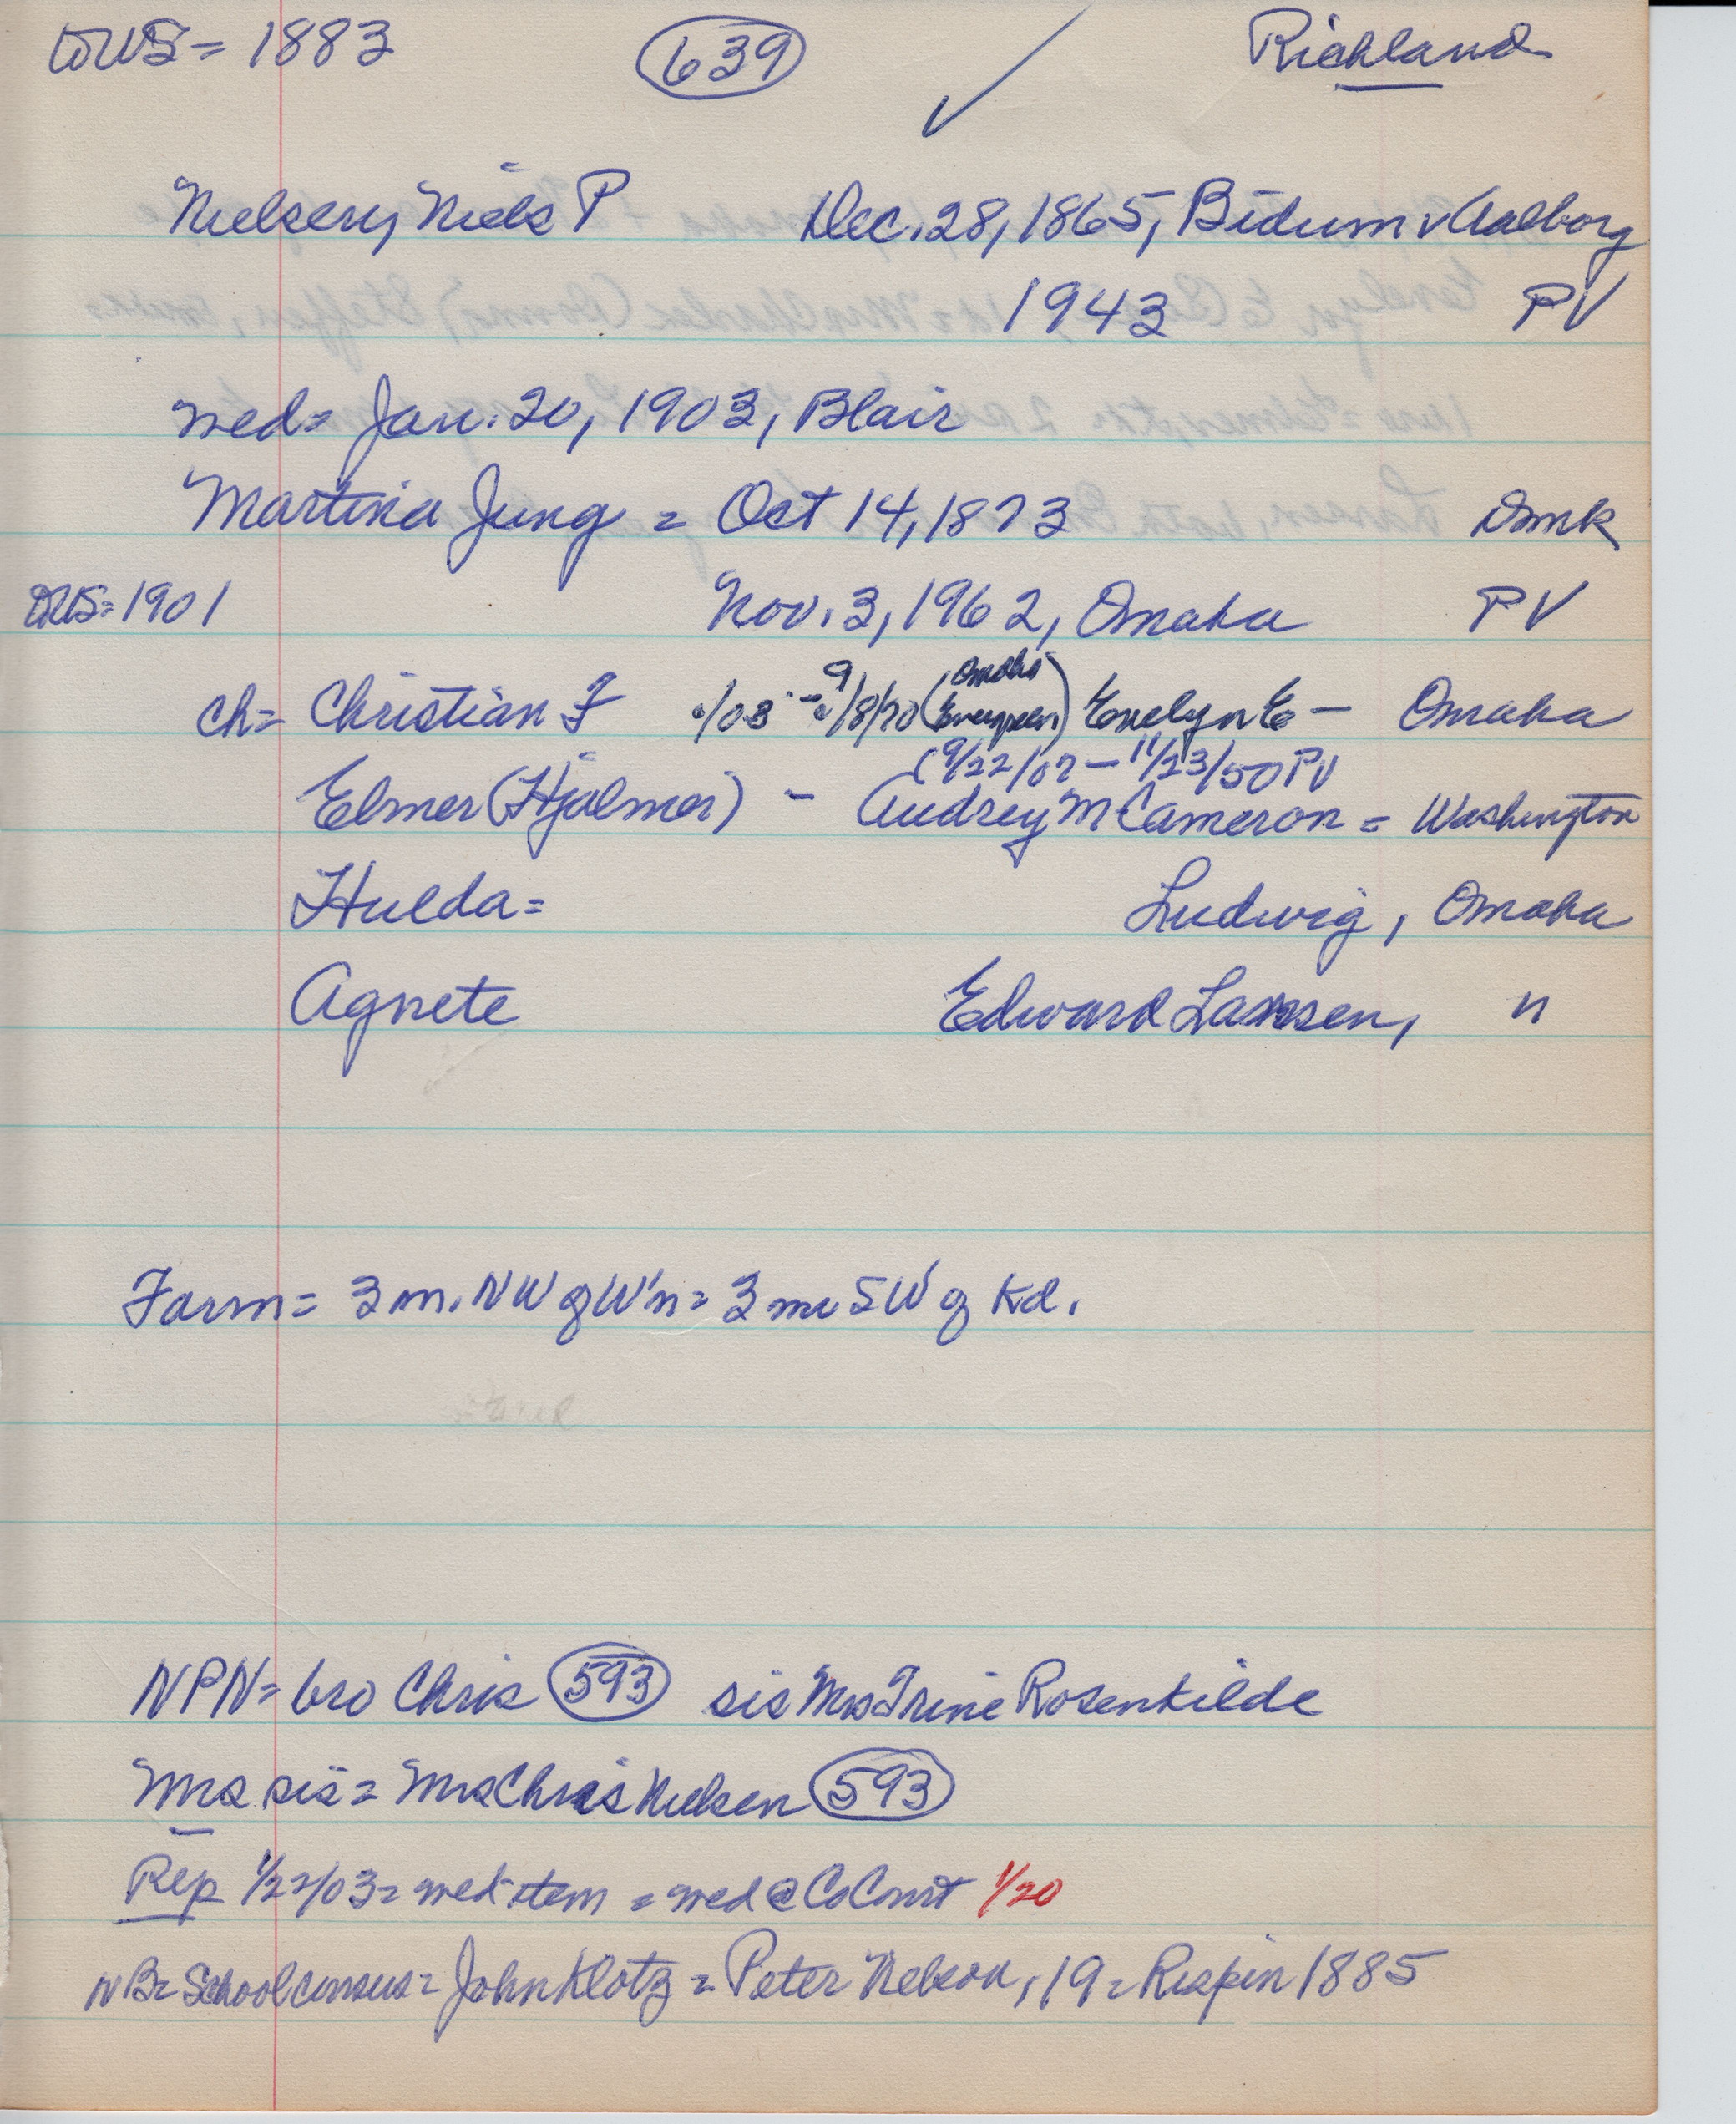 to US = 1883 639 ✓ Richland
Nielsen, Niels P Dec. 28, 1865, Bidum v Aalborg
1943 PV
wed = Jan. 20, 1903, Blair
Martina Jung = Oct 14, 1873 Dmk
to US = 1901 Nov. 3, 1962, Omaha PV
ch = Christian F /03 - 9/8/70 (Omaha Evergreen) Evelyn E - Omaha
(9/22/07 - 11/23/50 PV
Elmer (Hjalmer) - Audrey M Cameron = Washington
Hulda = Ludwig, Omaha
Agnete Edward Larsen, "
Farm = 3 m. NW of W'n = 3 mi SW of Kd.
NPN = bro Chris 593 sis Mrs Trine Rosenkilde
Mrs sis = Mrs Chris Nielsen 593
Rep 1/22/03 = wed item = wed @ Co Court 1/20
NB = School census = John Klotz = Peter Nelson, 19 = Rispin 1885